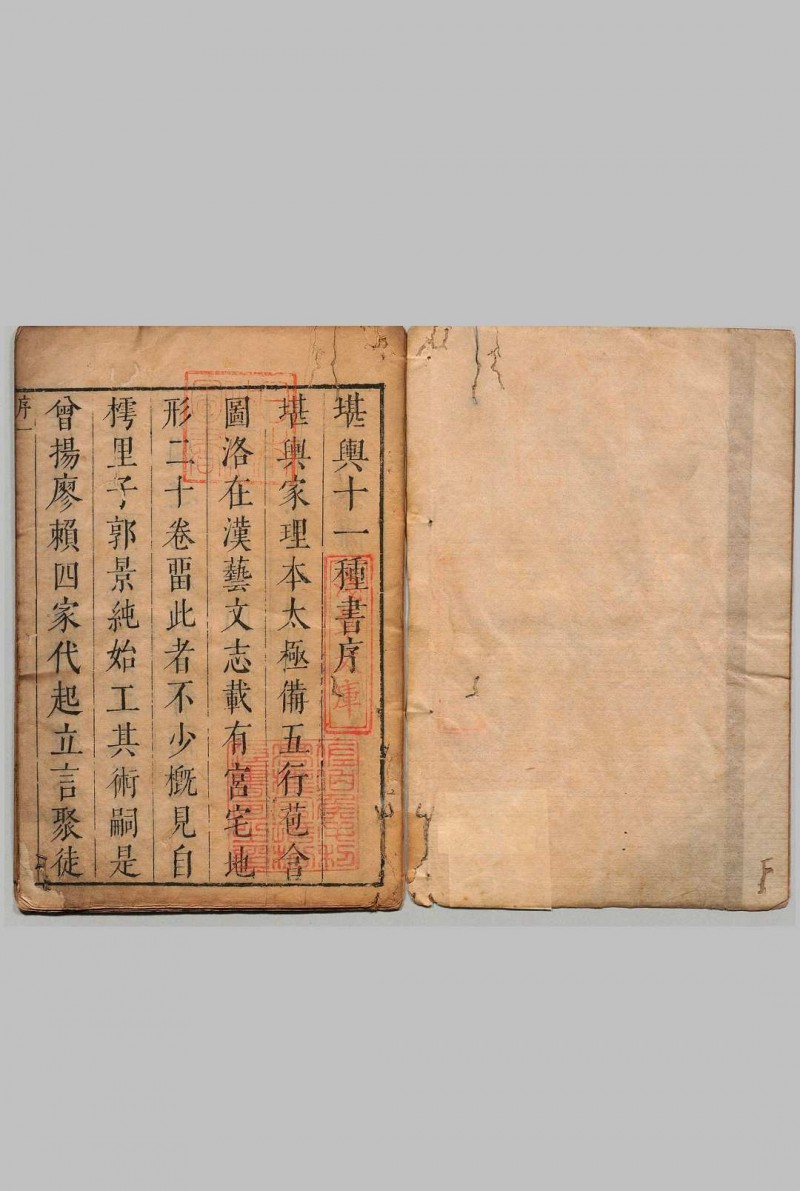 堪輿十一種書序
堪輿家理本太極備五行苞含
圖洛在漢藝文志載有宮宅地
形二十卷畱此者不少槪見自
樗里子郭景純始工其術嗣是
曾揚廖賴四家代起立言聚徒
序一
庫